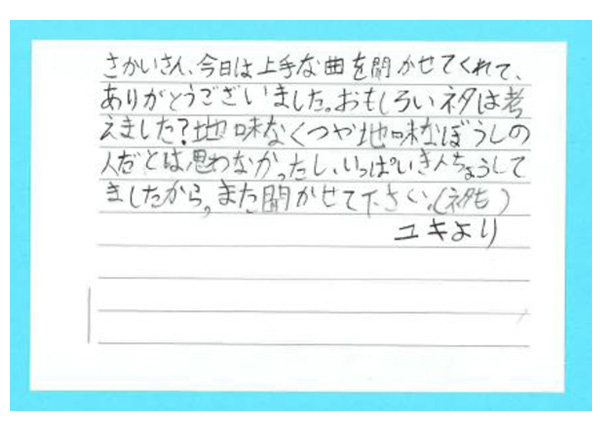 さかいさん、今日は上手な曲を聞かせてくれて、
ありがとうございました。おもしろいネタは考
えました?地味なくつや地味なぼうしの
人だとは思わなかったし、いっぱいきんちょうして
ましたから。また聞かせて下さい。(ネタも)
ユキより